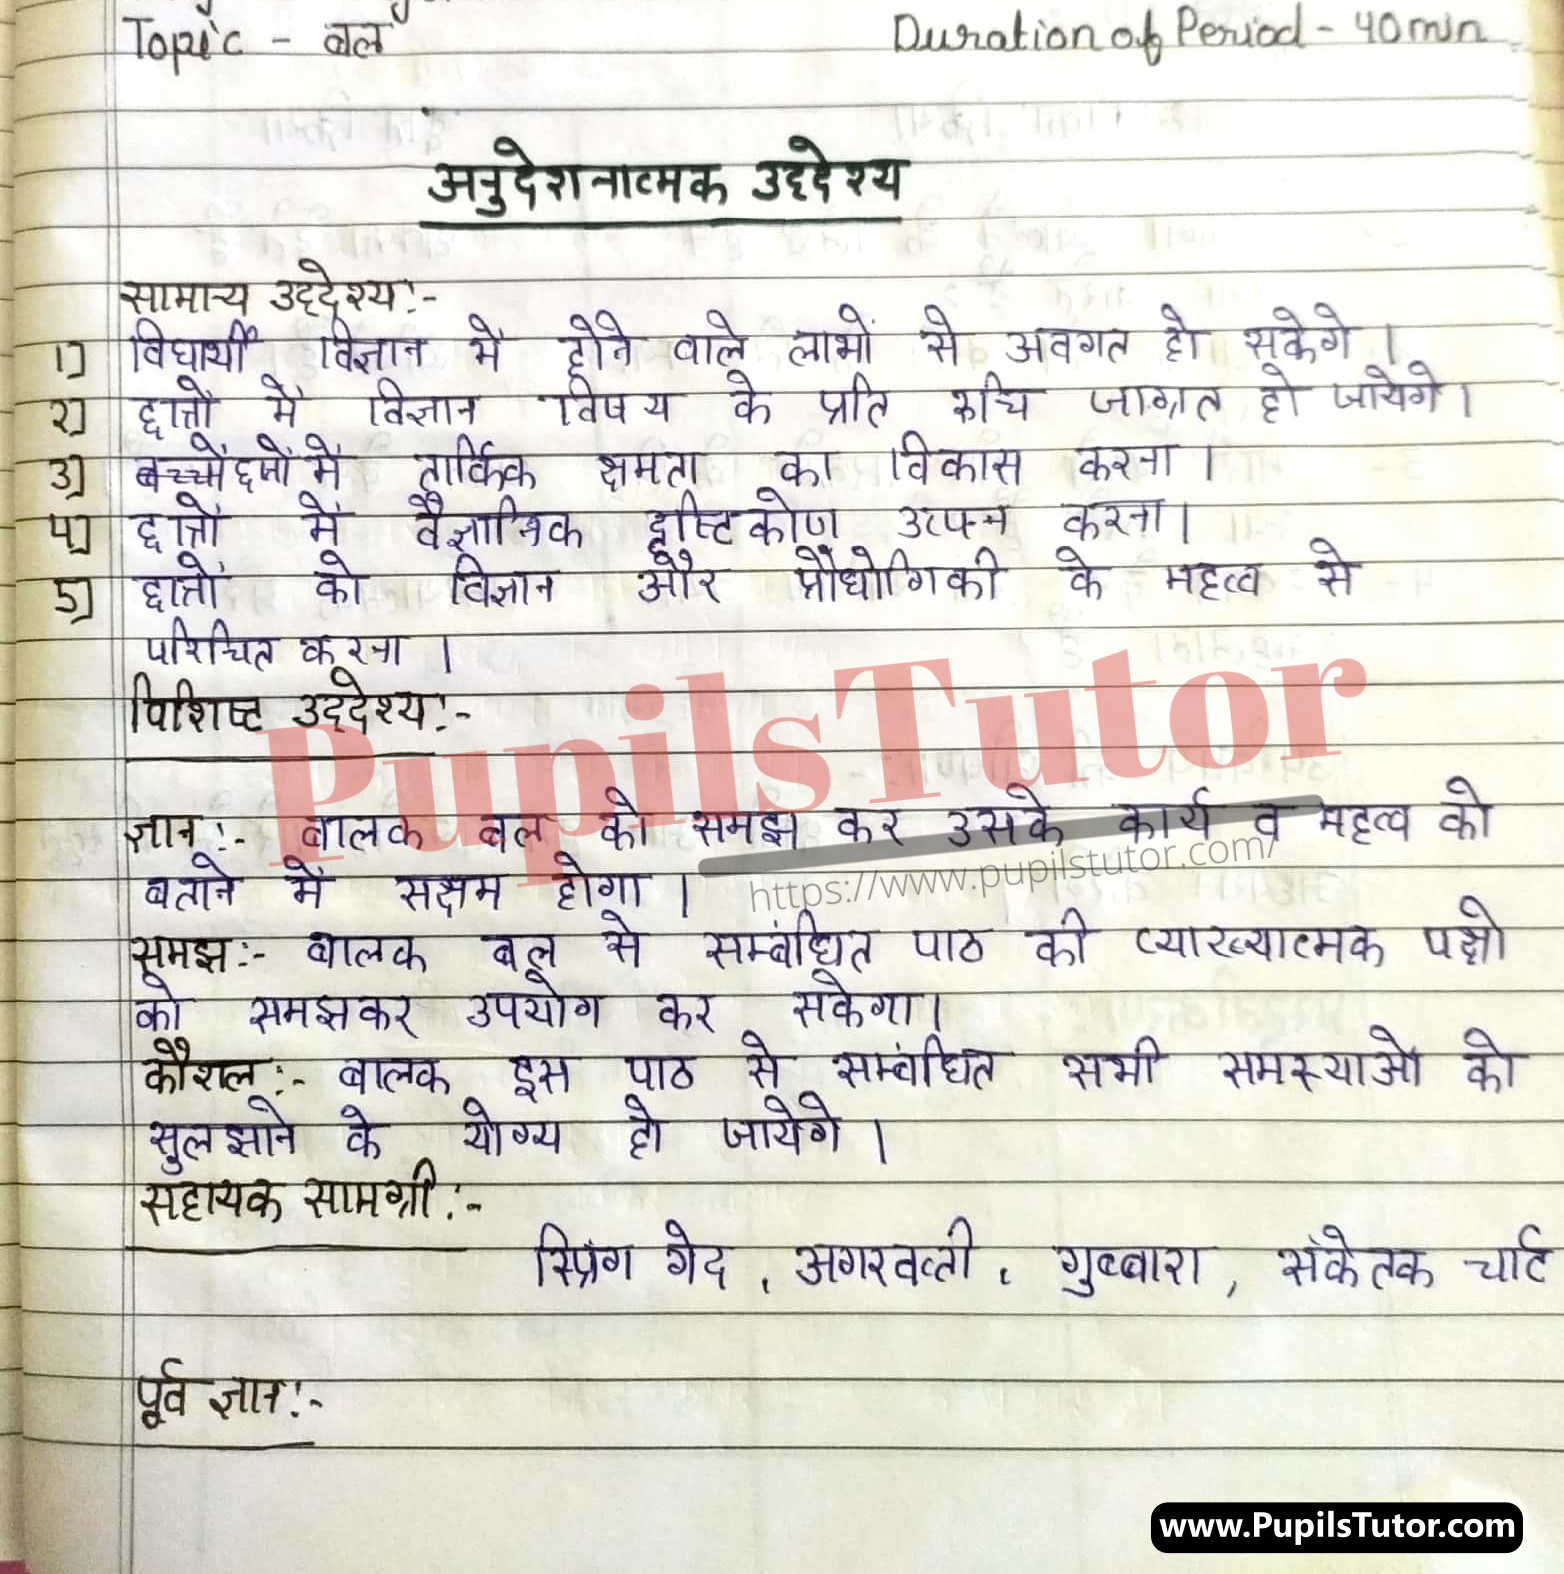 Topic - बल
Duration of Period - 40 min
अनुदेशनात्मक उद्देश्य
सामान्य उद्देश्य:-
1) विद्यार्थी विज्ञान में होने वाले लाभों से अवगत हो सकेगे ।
२) छात्रों में विज्ञान विषय के प्रति रूचि जाग्रत हो जायेगे ।
3) बच्चों छात्रों में तार्किक क्षमता का विकास करना ।
4) छात्रों में वैज्ञानिक दृष्टिकोण उत्पन्न करना ।
5) छात्रों को विज्ञान और प्रौधोगिकी के महत्व से
परिचित करना ।
विशिष्ट उद्देश्य:-
PupilsTutor
ज्ञान:- बालक बल को समझ कर उसके कार्य व महत्व को
https://www.pupilstutor.com/
बताने में सक्षम होगा ।
समझ:- बालक बल से सम्बंधित पाठ की व्याख्यात्मक पक्षो
को समझकर उपयोग कर सकेगा ।
कौशल:- बालक इस पाठ से सम्बंधित सभी समस्याओ को
सुलझाने के योग्य हो जायेगे ।
सहायक सामग्री:-
स्प्रिंग गेद , अगरबत्ती , गुब्बारा , संकेतक चार्ट
पूर्व ज्ञान:-
www.PupilsTutor.com